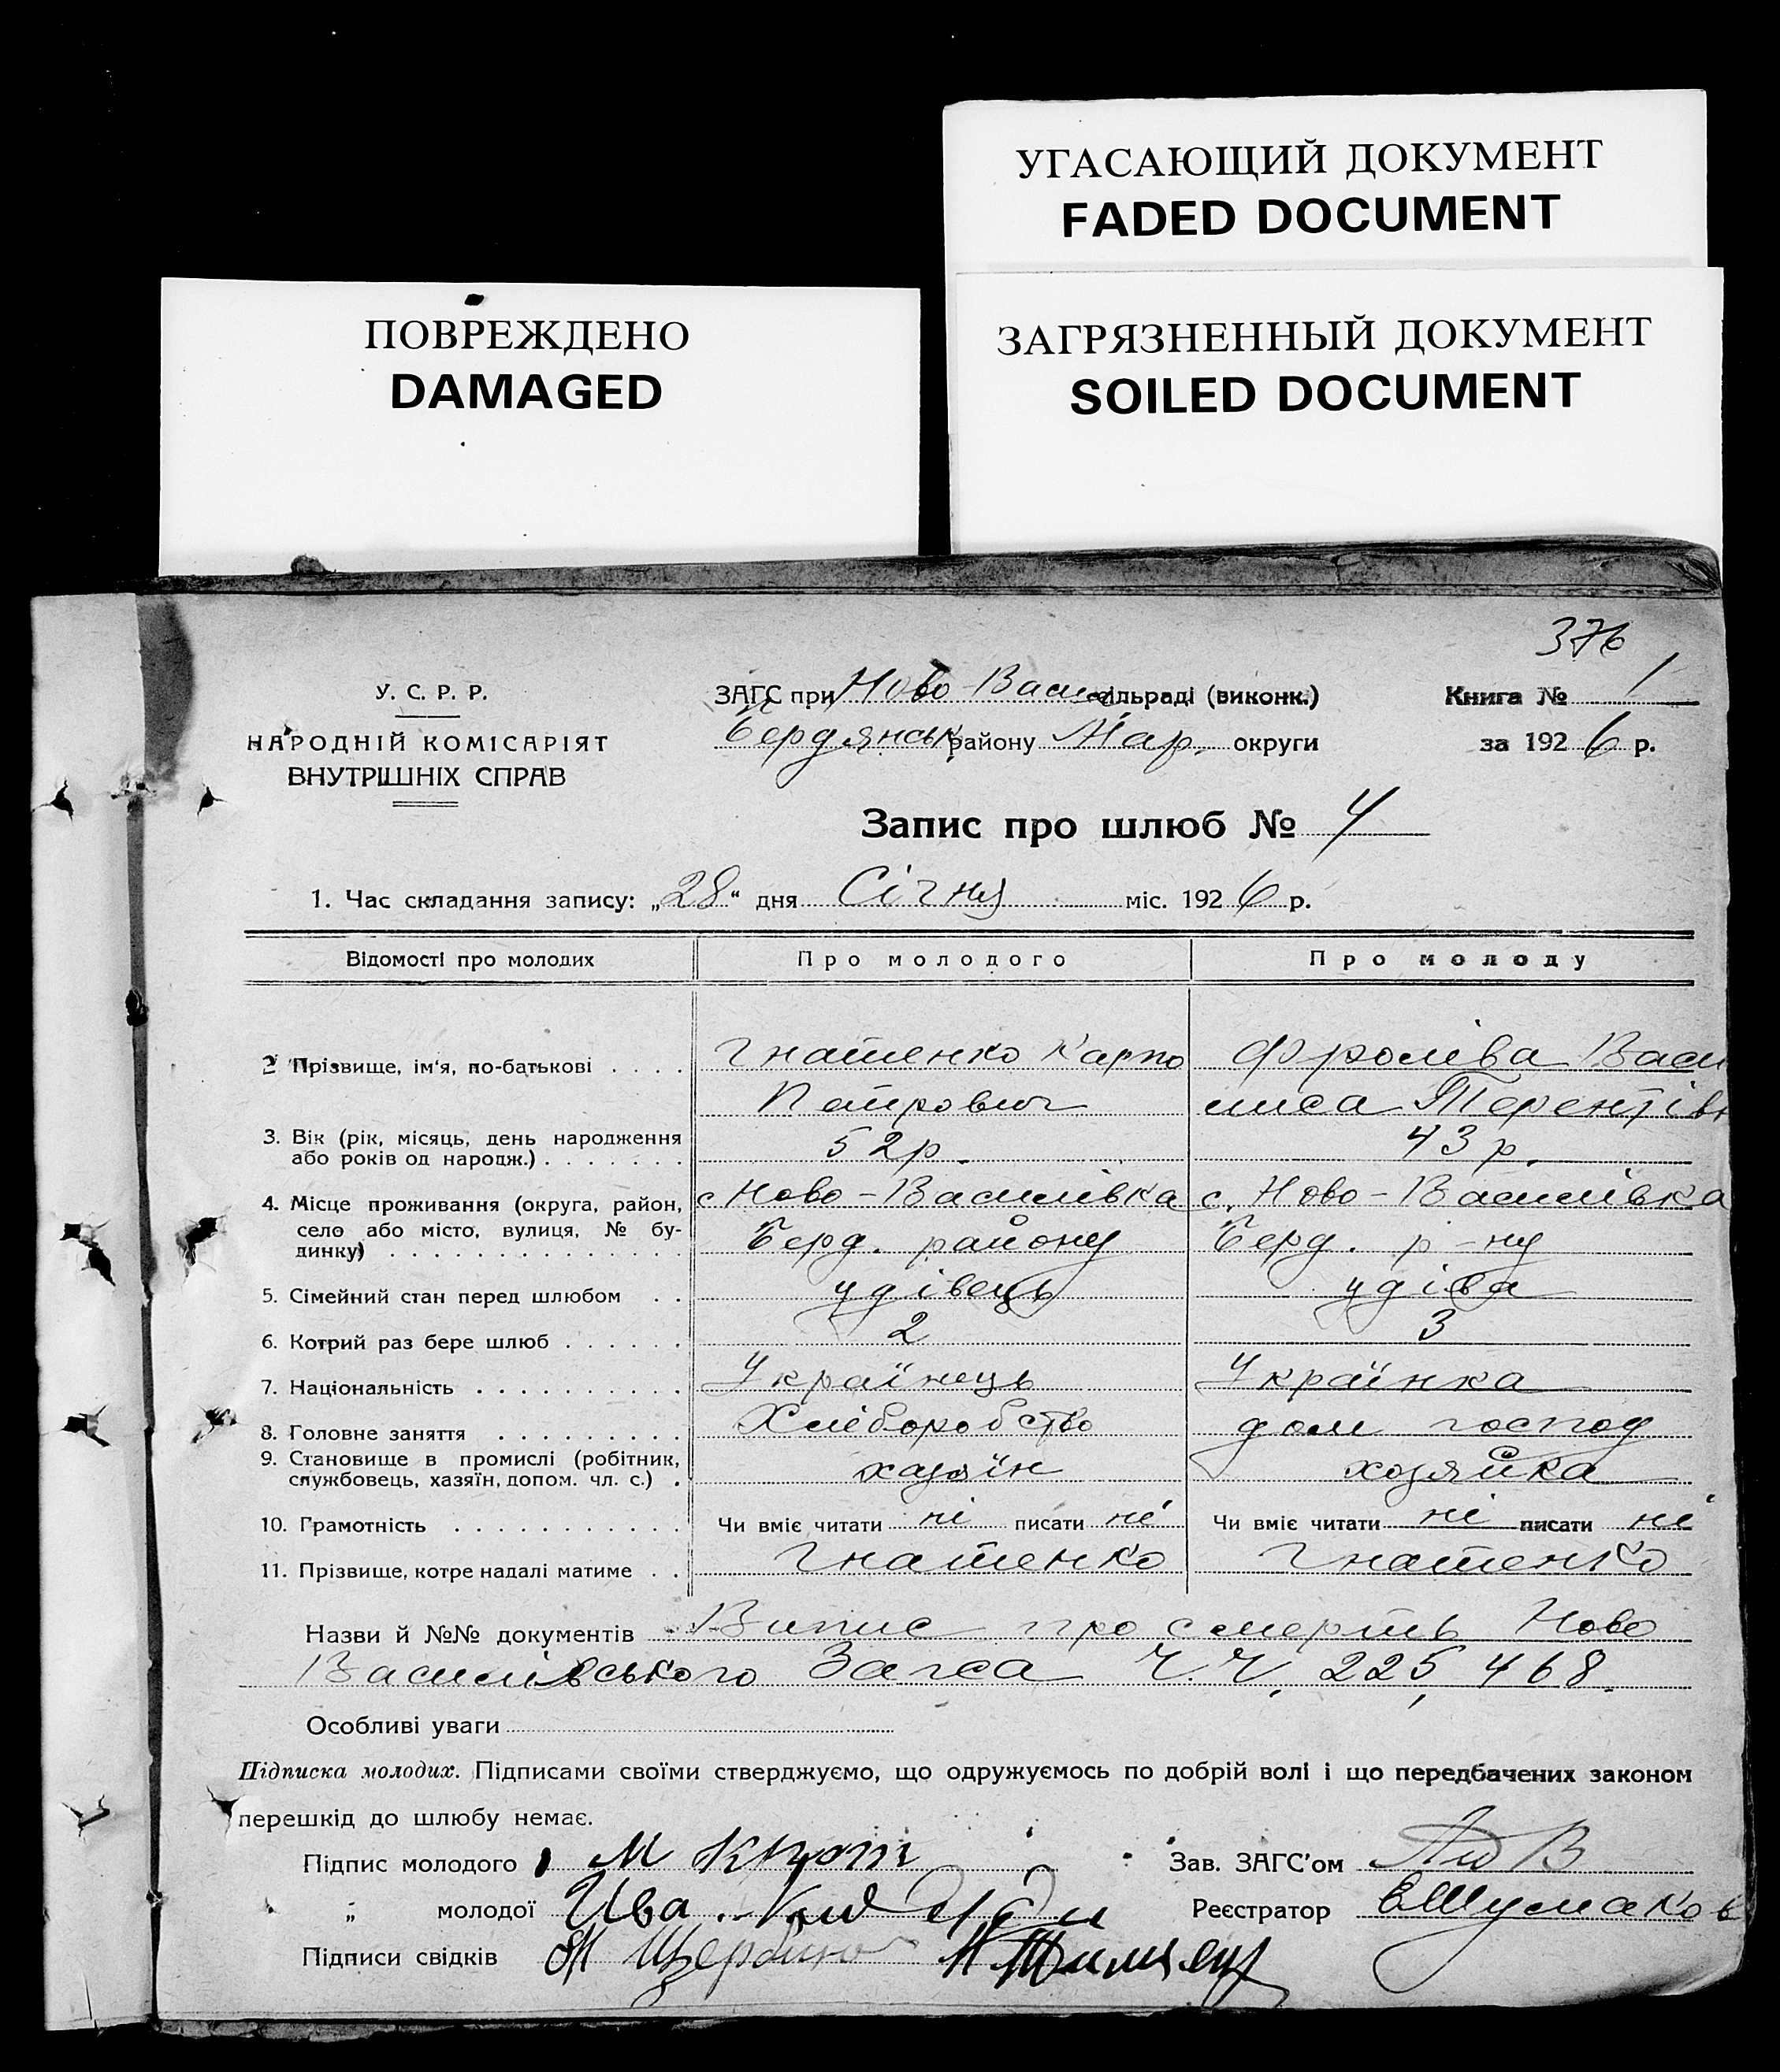 УГАСАЮЩИЙ ДОКУМЕНТ
FADED DOCUMENT
ПОВРЕЖДЕНО
DAMAGED
ЗАГРЯЗНЕННЫЙ ДОКУМЕНТ
SOILED DOCUMENT
376
У. С. Р. Р.
НАРОДНІЙ КОМІСАРІЯТ
ВНУТРІШНІХ СПРАВ
ЗАГС при Ново-Васил сільраді (виконк.)
Бердянськ району Мар. округи
Книга № 1
за 1926 р.
Запис про шлюб № 4
1. Час складання запису: „28“ дня Січня міс. 1926 р.
Відомості про молодих Про молодого Про молоду
2 Прізвище, ім'я, по-батькові . . . . Гнатенко Карпо Фролова Васи
Петрович лиса Терентівн
3. Вік (рік, місяць, день народження
або років од народж.) . . . . . . . 52 р. 43 р.
4. Місце проживання (округа, район, с Ново-Василівка с. Ново-Василівка
село або місто, вулиця, № бу-
динку) . . . . . . . . . . . . . . Берд. району Берд. р-ну
5. Сімейний стан перед шлюбом . . удівець удова
6. Котрий раз бере шлюб . . . . . . 2 3
7. Національність . . . . . . . . . . Українець Українка
8. Головне заняття . . . . . . . . . Хліборобство дом господ
9. Становище в промислі (робітник,
службовець, хазяїн, допом. чл. с.) . хазяїн хозяйка
10. Грамотність . . . . . . . . . . . Чи вміє читати ні писати ні Чи вміє читати ні писати ні
11. Прізвище, котре надалі матиме . . Гнатенко Гнатенко
Назви й №№ документів Випис про смерть Ново
Василівського Загса Ч.Ч. 225, 468.
Особливі уваги
Підписка молодих. Підписами своїми стверджуємо, що одружуємось по добрій волі і що передбачених законом
перешкід до шлюбу немає.
Підпис молодого М
Зав. ЗАГС'ом
„ молодої Ива
Реєстратор Шумаков
Підписи свідків М Щербина